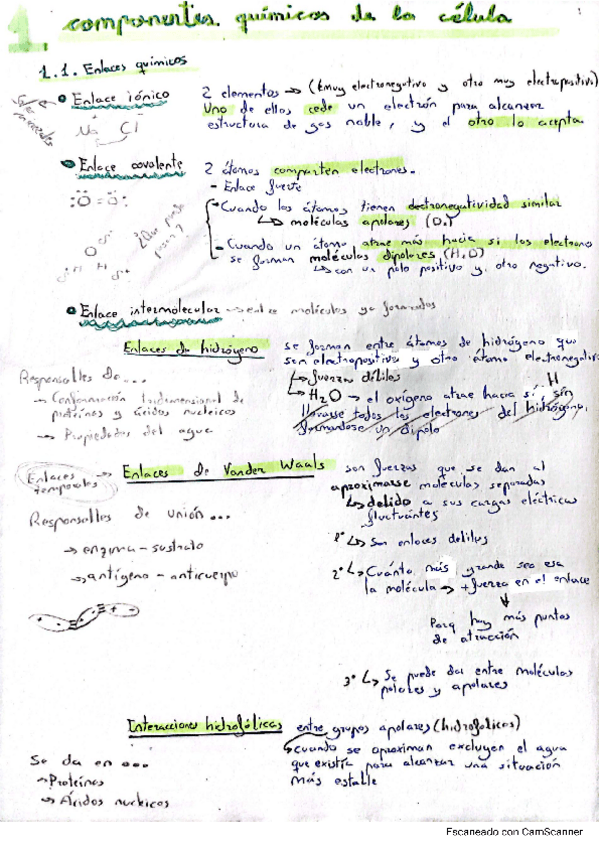 1. componentes químicos de la célula
1.1. Enlaces químicos
Sales minerales
• Enlace iónico
2 elementos → (1 muy electronegativo y otro muy electropositivo)
Uno de ellos cede un electrón para alcanzar
estructura de gas noble, y el otro lo acepta.
Na Cl
• Enlace covalente
2 átomos comparten electrones.
- Enlace fuerte
:O=O:
- Cuando los átomos tienen electronegatividad similar
↳ moléculas apolares (O₂)
¿Que puede pasar?
- Cuando un átomo atrae más hacia si los electrones
se forman moléculas dipolares (H₂O)
↳ con un polo positivo y otro negativo.
O δ-
δ+ H H δ+
• Enlace intermolecular → entre moléculas ya formadas
Enlaces de hidrógeno
se forman entre átomos de hidrógeno que
son electropositivos y otro átomo electronegativo
↳ fuerzas débiles
↳ H₂O → el oxígeno atrae hacia sí, sin H
llevarse todos los electrones del hidrógeno,
formandose un dipolo
Responsables de...
→ Conformación tridimensional de
proteínas y ácidos nucleicos
→ Propiedades del agua
Enlaces temporales →
Enlaces de Vander Waals
son fuerzas que se dan al
aproximarse moléculas separadas
↳ debido a sus cargas eléctricas
fluctuantes
Responsables de unión...
→ enzima - sustrato
→ antígeno - anticuerpo
1º ↳ Son enlaces débiles
2º ↳ Cuánto más grande sea esa
la molécula → + fuerza en el enlace
Porq hay más puntos
de atracción
3º ↳ Se puede dar entre moléculas
polares y apolares
Interacciones hidrofóbicas
entre grupos apolares (hidrofóbicos)
↳ cuando se aproximan excluyen el agua
que existía para alcanzar una situación
más estable
Se da en ...
→ Proteínas
→ Ácidos nucleicos
Escaneado con CamScanner